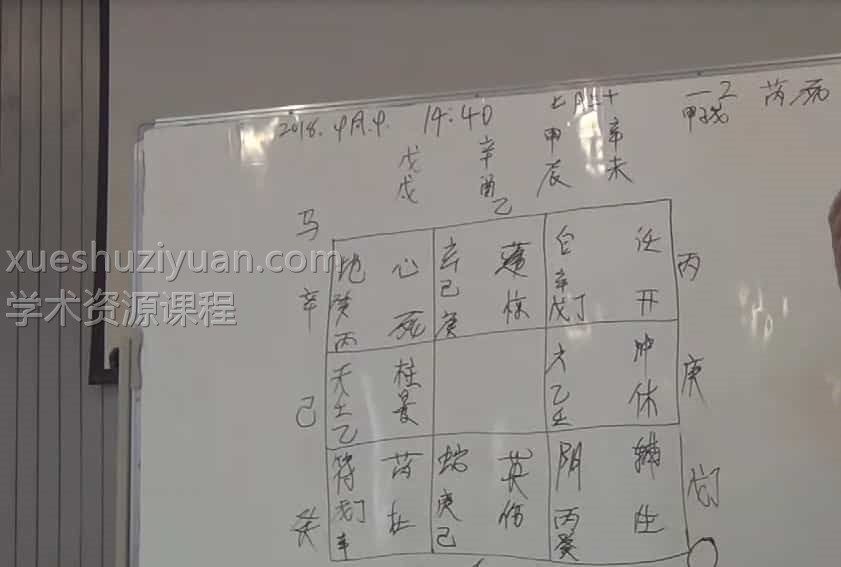 2018. 9月.9. 14:40 七月三十 一 2 芮死
甲子戊
戊 辛 甲 辛
戌 酉 辰 未
乙
马
地 心 玄 蓬 白 任 丙
辛 癸 己 辛
丙 死 庚 惊 戊丁 开
xueshuziyuan.com
学术资源课程
天 柱 六 冲 庚
己 壬 景 乙 休
乙 壬
符 芮 蛇 英 阴 辅 戊丁
癸 戊丁 杜 庚 伤 丙 生
辛 己 癸